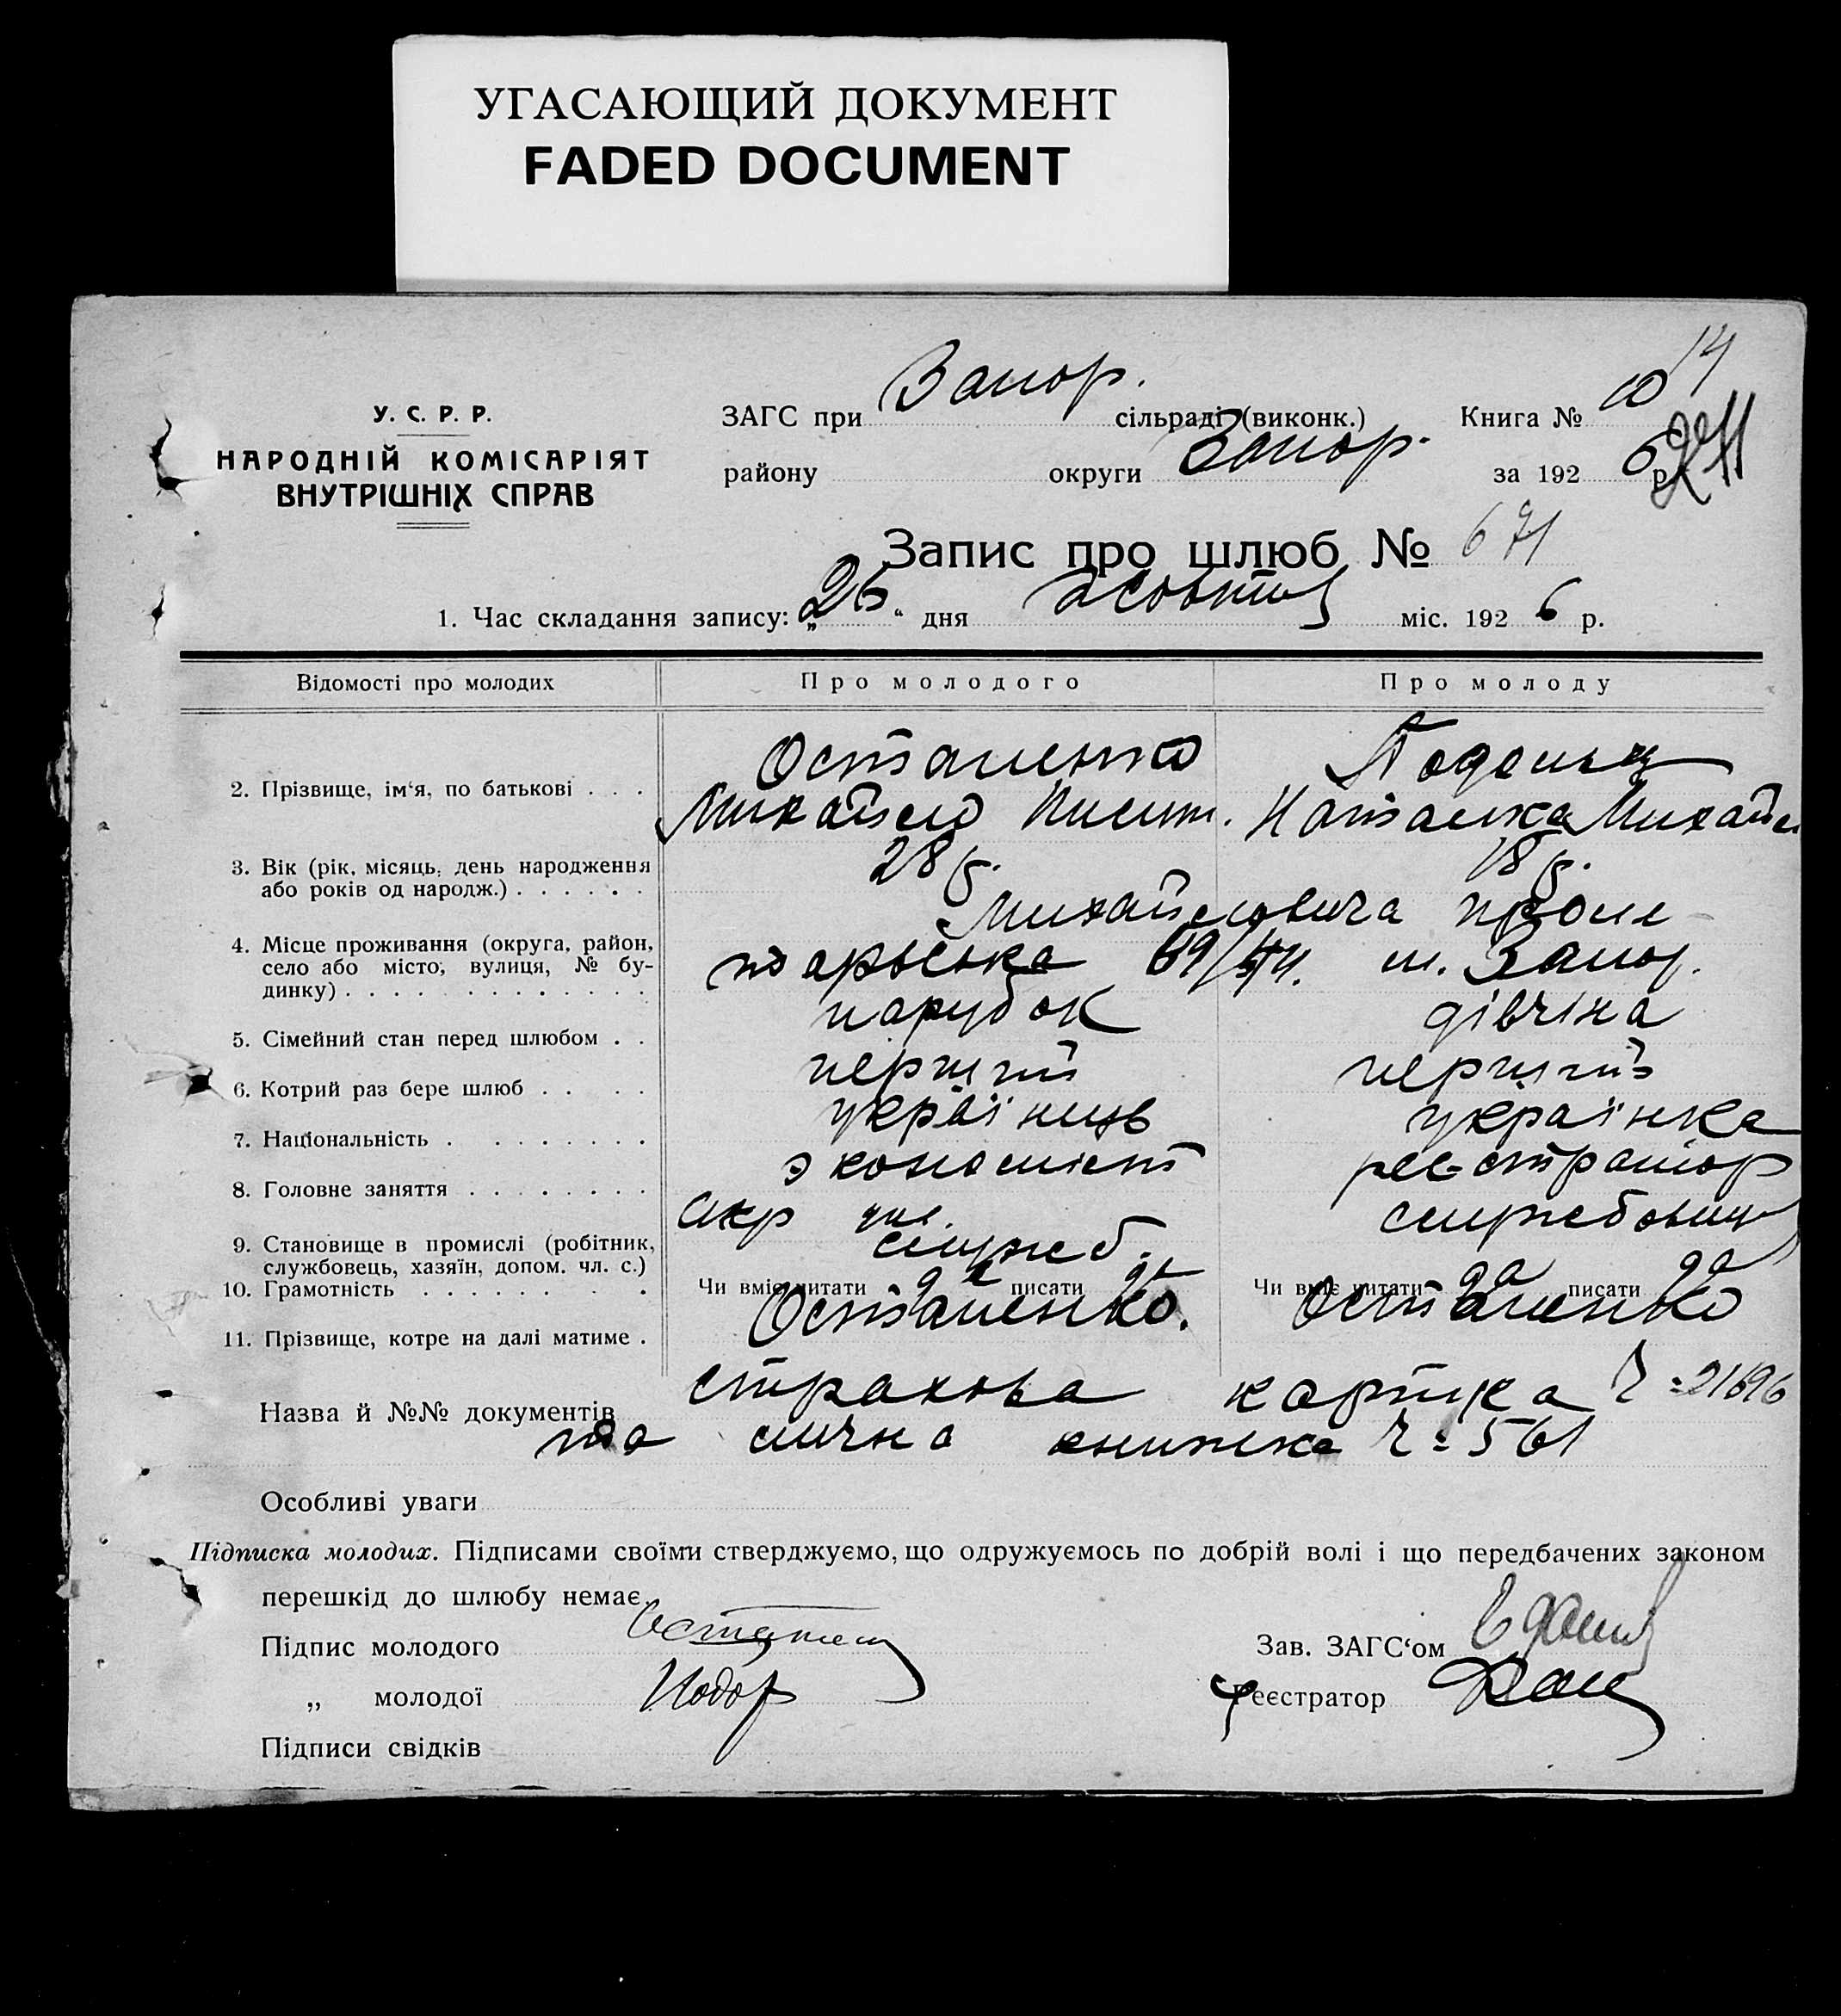 УГАСАЮЩИЙ ДОКУМЕНТ
FADED DOCUMENT
У. С. Р. Р.
НАРОДНІЙ КОМІСАРІЯТ
ВНУТРІШНІХ СПРАВ
ЗАГС при Запор. сільраді (виконк.) Книга №
району округи Запор. за 192 6 р.
Запис про шлюб № 671
1. Час складання запису: „26“ дня жовтня міс. 192 6 р.
Відомості про молодих Про молодого Про молоду
2. Прізвище, ім‘я, по батькові . . . Остапенко
Михайло Наталка Михайл
3. Вік (рік, місяць, день народження 28 р. 18 р.
або років од народж.) . . . . . .
4. Місце проживання (округа, район,
село або місто, вулиця, № бу-
динку) . . . . . . . . . . . . . м. Запор.
5. Сімейний стан перед шлюбом . . парубок дівчіна
6. Котрий раз бере шлюб . . . . перший перший
7. Національність . . . . . . . . українець українка
8. Головне заняття . . . . . . . . экономист реєстратор
9. Становище в промислі (робітник, служб. службовиця
службовець, хазяїн, допом. чл. с.)
10. Грамотність . . . . . . . Чи вміє читати да писати да Чи вміє читати да писати да
11. Прізвище, котре на далі матиме . Остапенко. Остапенко
Назва й №№ документів страхова картка Ч = 21696
та лична книжка Ч = 561
Особливі уваги
Підписка молодих. Підписами своїми стверджуємо, що одружуємось по добрій волі і що передбачених законом
перешкід до шлюбу немає.
Підпис молодого Зав. ЗАГС‘ом
„ молодої Реєстратор
Підписи свідків